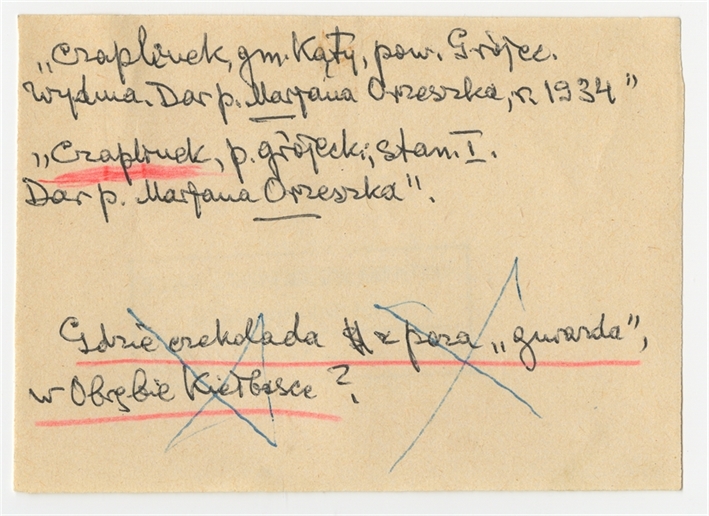 „Czaplinek, gm. Kąty, pow. Grójec.
Wydma. Dar p. Marjana Orzeszka, r. 1934”
„Czaplinek, p. grójecki, stan. I.
Dar p. Marjana Orzeszka”.
Gdzie czekolada z poza „gwarda”,
w Obrębie Kiełbasce?